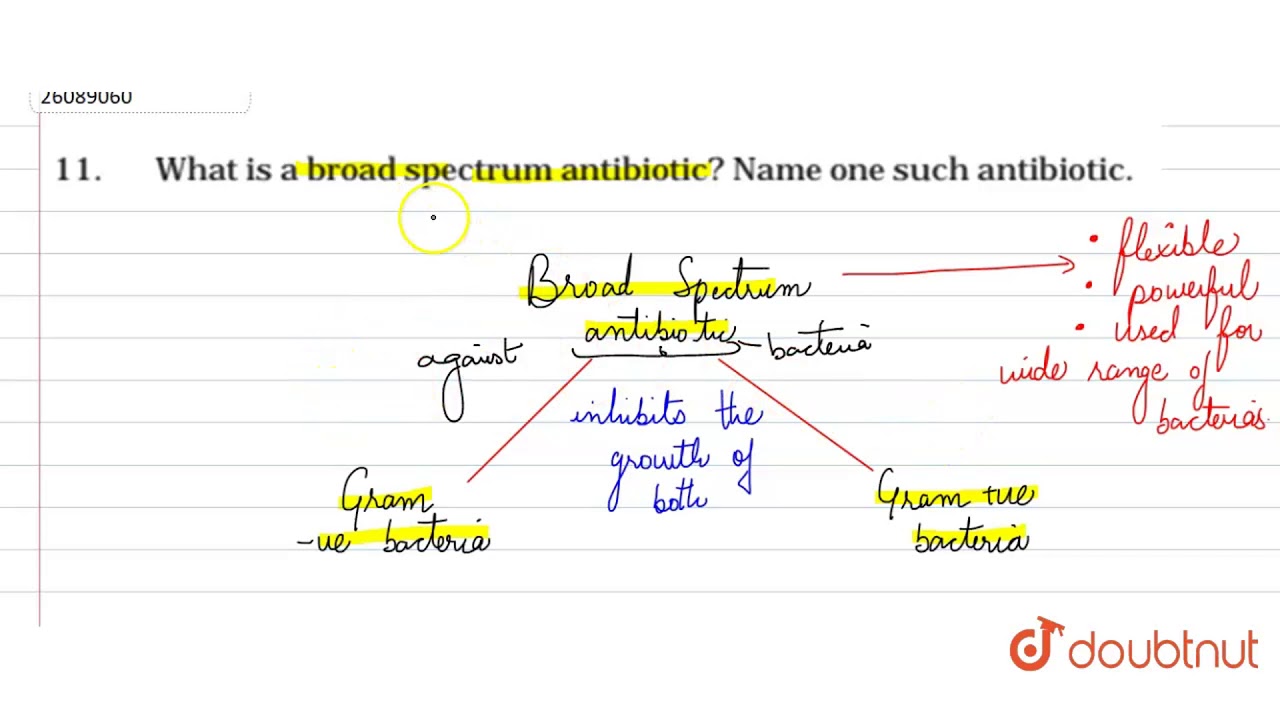 26089060
11. What is a broad spectrum antibiotic? Name one such antibiotic.
Broad Spectrum
antibiotic - bacteria
against
inhibits the
growth of
both
Gram
-ve bacteria
Gram +ve
bacteria
• flexible
• powerful
• used for
wide range of
bacterias.
doubtnut